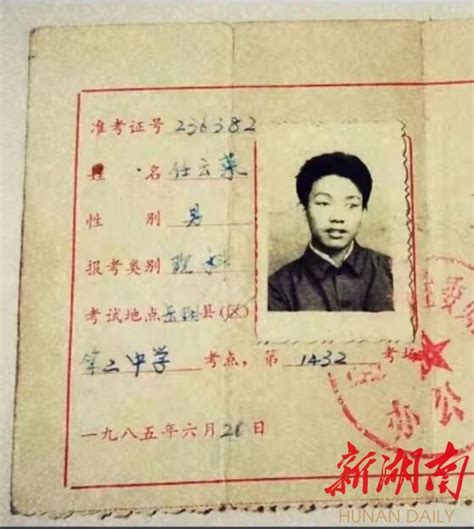 准考证号 236382
姓 名 任云莱
性 别 男
报考类别 理科
考试地点 岳阳 县(区)
第二中学 考点,第 1432 考场
一九八五年六月 日
新湖南
HUNAN DAILY